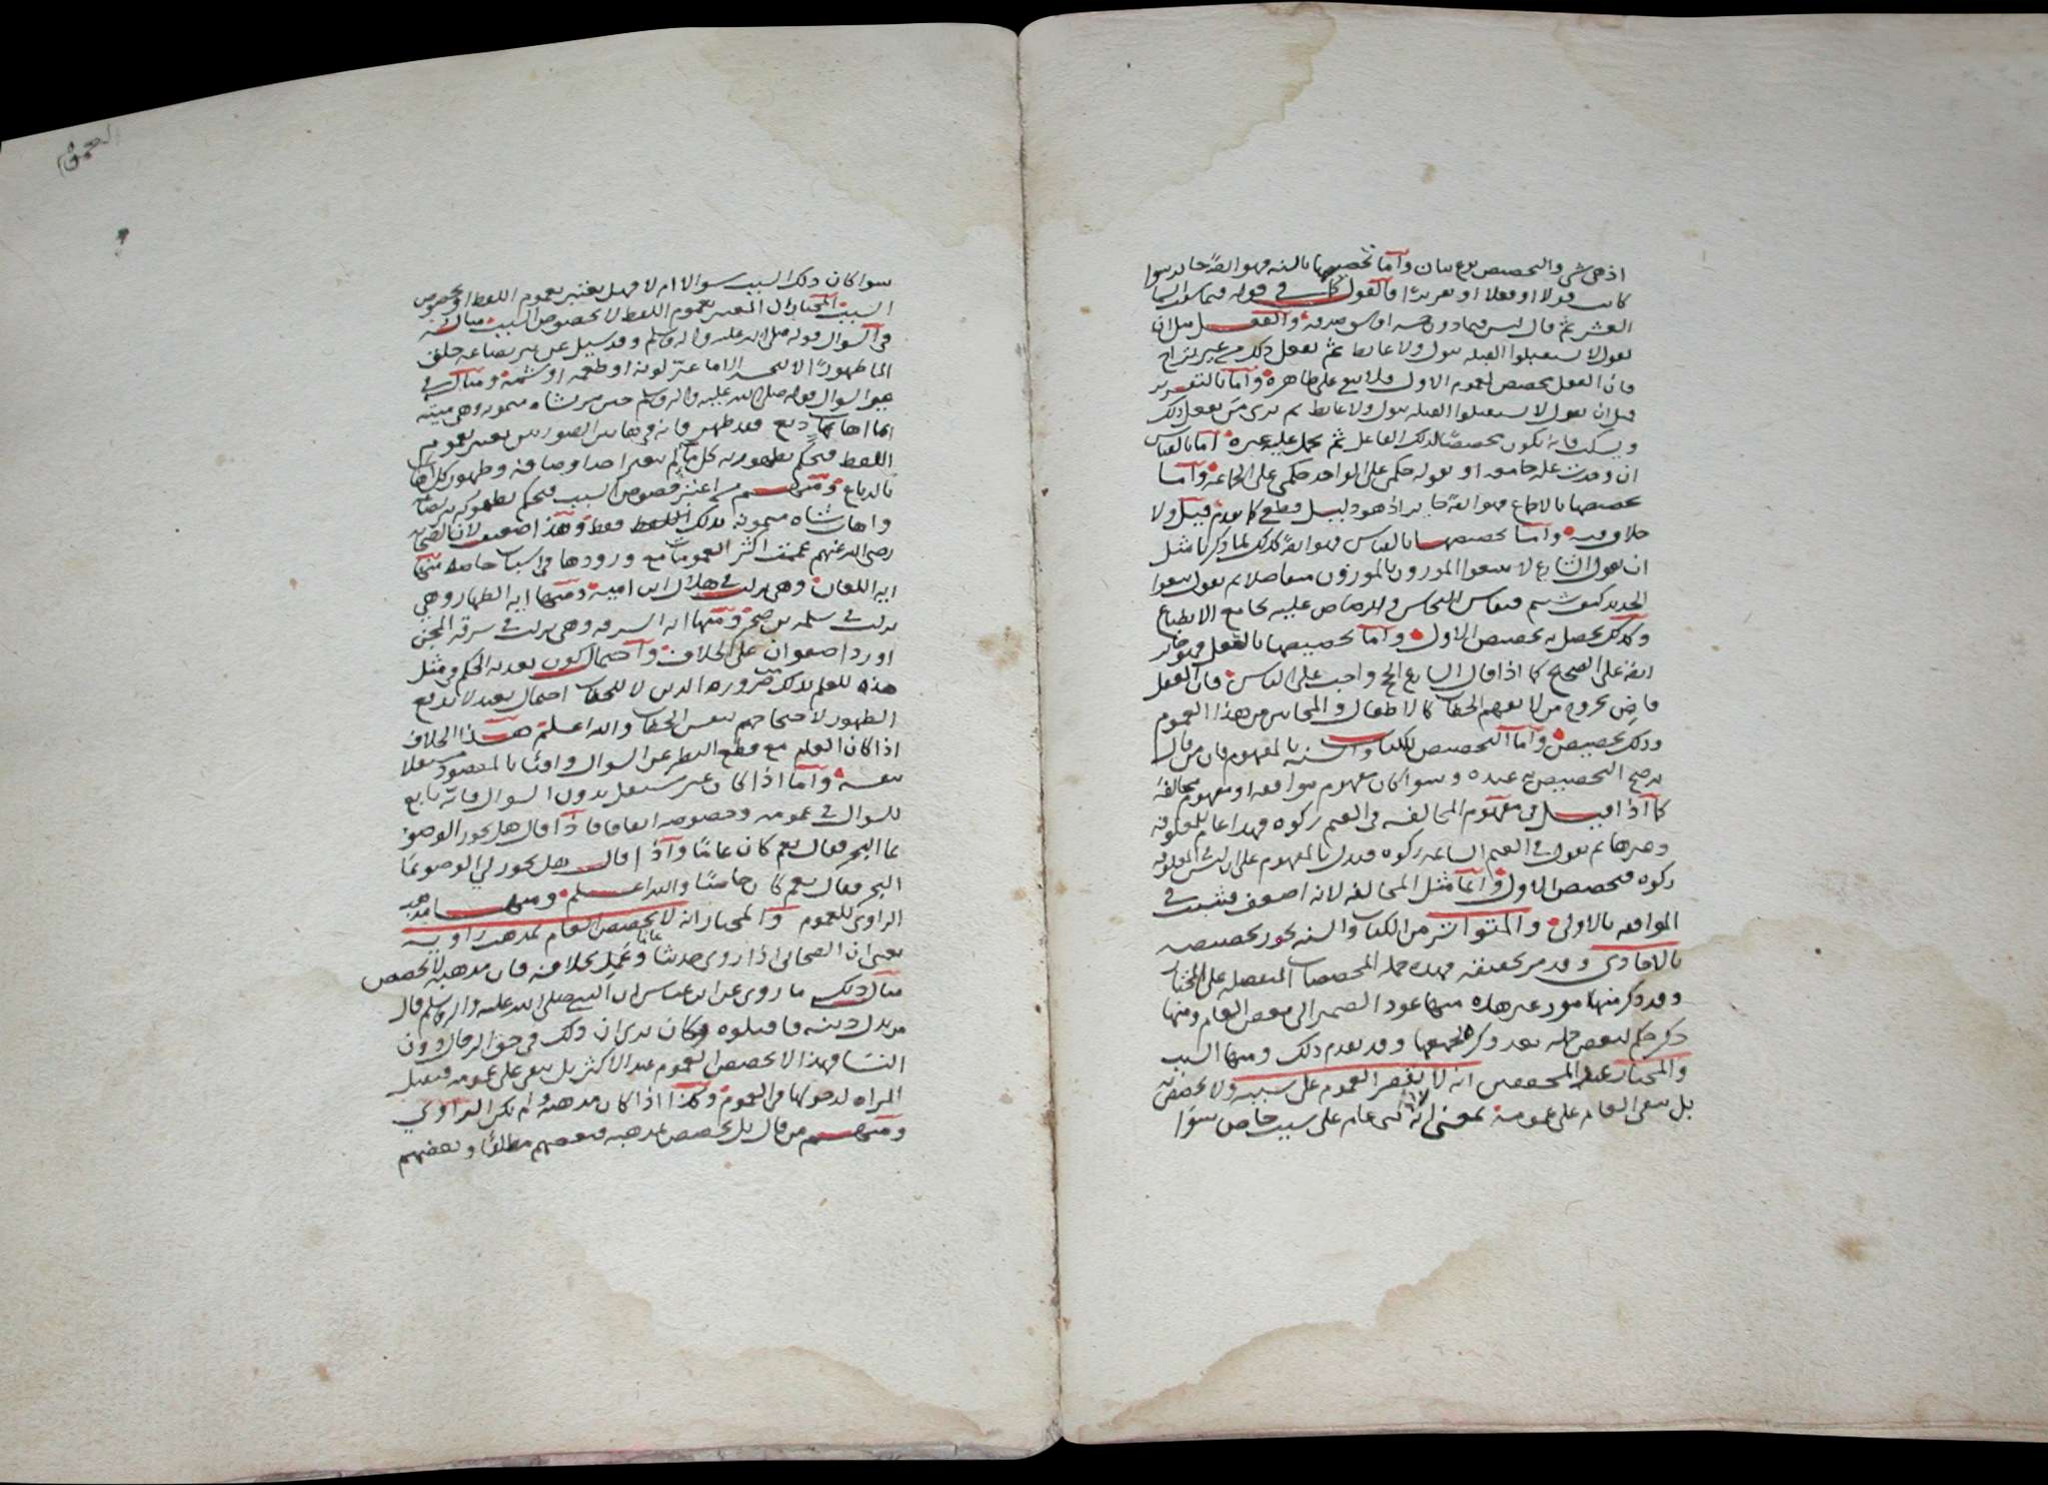 اذ هي شي والتخصيص نوع بيان وأما تخصيصها بالسنه فهو ايضًا جايز سوا
كانت قولا او فعلا او تقريرًا فالقول كما في قوله فيما سقت السما
العشر ثم قال ليس فيما دون خمسه اوسق صدقه والفعل مثل ان
يقول لا تستقبلوا القبله ببول ولا غايط ثم يفعل ذلك من غير تراخ
فان الفعل يخصص العموم الاول فلا يبقى على ظاهره وأما بالتقرير
مثل ان يقول لا تستقبلوا القبله ببول ولا غايط ثم يرى من يفعل ذلك
ويسكت فانه يكون تخصيصًا لذلك الفاعل ثم يحمل عليه غيره اما بالقياس
ان وجدت عله جامعه او بقوله حكمي على الواحد حكمي على الجماعه وأما
تخصيصها بالاجماع فهو ايضًا جايز اذ هو دليل قطعي كما تقدم قيل ولا
خلاف فيه وأما تخصيصها بالقياس فهو ايضًا كذلك لما ذكرنا مثل
ان يقول الشارع لا تبيعوا الموزون بالموزون متفاضلا ثم يقول بيعوا
الحديد كيف شيتم فيقاس النحاس والرصاص عليه بجامع الانطباع
وكذلك يحصل به تخصيص الاول وأما تخصيصها بالعقل فهو جايز
ايضًا على الصحيح كما اذا قال الشارع الحج واجب على الناس فان العقل
قاضٍ بخروج من لا يفهم الخطاب كالاطفال والمجانين من هذا العموم
وذلك تخصيص وأما التخصيص للكتاب والسنه بالمفهوم فان من قال به
يصح التخصيص به عنده وسوا كان مفهوم موافقه او مفهوم مخالفه
كما اذا قيل في مفهوم المخالفه في الغنم زكوه فهذا عام للمعلوفه
وغيرها ثم يقول في الغنم السايمه زكوه فيدل بالمفهوم على ان ليس في المعلوفه
زكوه فيخصص الاول وانما مثل المخالفه لانه اضعف فثبت في
الموافقه بالاولى والمتواتر من الكتاب والسنه يجوز تخصيصه
بالاحادي وقد مر تحقيقه فهذه جمله المخصصات المنفصله على المختار
وقد ذكر منها امور غير هذه منها عود الضمير الى بعض العام ومنها
ذكر حكم لبعض جمله بعد ذكره لجميعها وقد تقدم ذلك ومنها السبب
والمختار عند المحققين انه لا يقصر العموم على سببه ولا يخصص به
بل يبقى العام على عمومه بمعنى انه اذا عام على سبب خاص سوًا
سوا كان ذلك السبب سوالا ام لا فهل يعتبر بعموم اللفظ او بخصوص
السبب المختار ان المعتبر بعموم اللفظ لا بخصوص السبب مثاله
في السوال قوله صلى الله عليه واله وسلم وقد سيل عن بير بضاعه خلق
الما طهورًا لا ينجسه الا ما غيّر لونه او طعمه او شمه ومثال في
غير السوال قوله صلى الله عليه واله وسلم حين مر بشاه ميمونه وهي ميته
ايما اهاب دبغ فقد طهر فانه في هاتين الصورتين يعتبر بعموم
اللفظ فيحكم بطهوريه كل ما لم يتغير احد اوصافه وطهور كل اهاب
بالدباغ ومنهم من اعتبر خصوص السبب فيحكم بطهوريه بير بضاعه
واهاب شاه ميمونه بذلك اللفظ فقط وهذا ضعيف لان الصحابه
رضي الله عنهم عممت اكثر العمومات مع ورودها في اسباب خاصه منها
ايه اللعان وهي نزلت في هلال ابن اميه ومنها ايه الظهار وهي
نزلت في سلمه بن صخر ومنها ايه السرقه وهي نزلت في سرقه المجن
او ردا صفوان على الخلاف واحتمال كون تعديه الحكم في مثل
هذه للعلم بذلك من ضروره الدين لا للخطاب احتمال بعيد لا يدفع
الظهور لاحتجاجهم بنفس الخطاب والله اعلم هذا الخلاف
اذا كان العام مع قطع النظر عن السوال وافيًا بالمقصود مستقلا
بنفسه وأما اذا كان غير مستقل بدون السوال فانه تابع
للسوال في عمومه وخصوصه اتفاقا فاذا قال هل يجوز الوضو
بما البحر فقال نعم كان عامًا واذا قال هل يجوز لي الوضو بما
البحر فقال نعم كان خاصًا والله اعلم ومنها مذهب
الراوي للعموم والمختار انه لا يخصص العام بمذهب راويه
يعني ان الصحابي اذا روى حديثا عامًا وعمل بخلافه فان مذهبه لا يخصص
مثال ذلك ما روي عن ابن عباس ان النبي صلى الله عليه واله وسلم قال
من بدل دينه فاقتلوه وكان يرى ان ذلك في حق الرجال دون
النسا فهذا لا يخصص العموم عند الاكثر بل يبقى على عمومه فتقتل
المراه لدخولها في العموم وكذا اذا كان مذهبه ولم يكن الراوي
ومنهم من قال بل يخصص بمذهبه فبعضهم مطلقًا وبعضهم